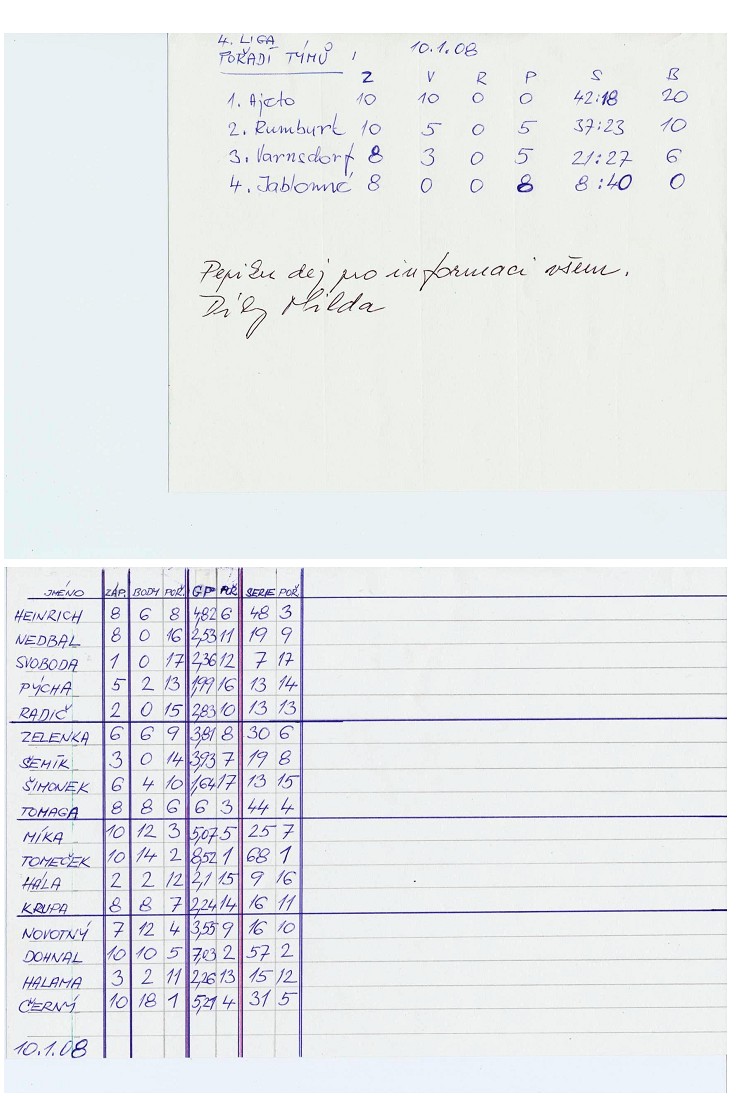 4. LIGA
POŘADÍ TÝMŮ , 10.1.08
Z V R P S B
1. Ajeto 10 10 0 0 42:18 20
2. Rumburk 10 5 0 5 37:23 10
3. Varnsdorf 8 3 0 5 21:27 6
4. Jablonné 8 0 0 8 8:40 0
Pepiku dej pro informaci všem.
Díky Milda
JMÉNO ZÁP. BODY POŘ. GP POŘ SERIE POŘ
HEINRICH 8 6 8 4,82 6 48 3
NEDBAL 8 0 16 2,53 11 19 9
SVOBODA 1 0 17 2,36 12 7 17
PÝCHA 5 2 13 1,99 16 13 14
RADIČ 2 0 15 2,83 10 13 13
ZELENKA 6 6 9 3,81 8 30 6
SEMÍK 3 0 14 3,93 7 19 8
ŠIMONEK 6 4 10 1,64 17 13 15
TOMAGA 8 8 6 6 3 44 4
MÍKA 10 12 3 5,07 5 25 7
TOMEČEK 10 14 2 8,52 1 68 1
HÁLA 2 2 12 2,1 15 9 16
KRUPA 8 8 7 2,24 14 16 11
NOVOTNÝ 7 12 4 3,55 9 16 10
DOHNAL 10 10 5 7,03 2 57 2
HALAMA 3 2 11 2,26 13 15 12
ČERNÝ 10 18 1 5,21 4 31 5
10.1.08